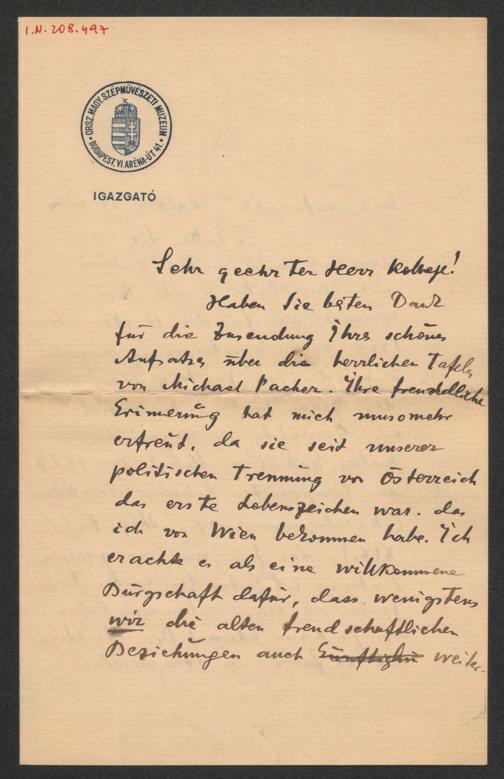 I.N. 208.497
ORSZ. MAGY. SZÉPMŰVÉSZETI MUZEUM
BUDAPEST, VI. ARÉNA-ÚT 41.
IGAZGATÓ
Sehr geehrter Herr Kollege!
Haben Sie besten Dank
für die Zusendung Ihres schönen
Aufsatzes über die herrlichen Tafeln
von Michael Pacher. Ihre freundliche
Erinnerung hat mich umsomehr
erfreut, da sie seit unserer
politischen Trennung von Österreich
das erste Lebenszeichen war, das
ich von Wien bekommen habe. Ich
erachte es als eine willkommene
Bürgschaft dafür, dass wenigstens
wir die alten freundschaftlichen
Beziehungen auch künftighin weiter-